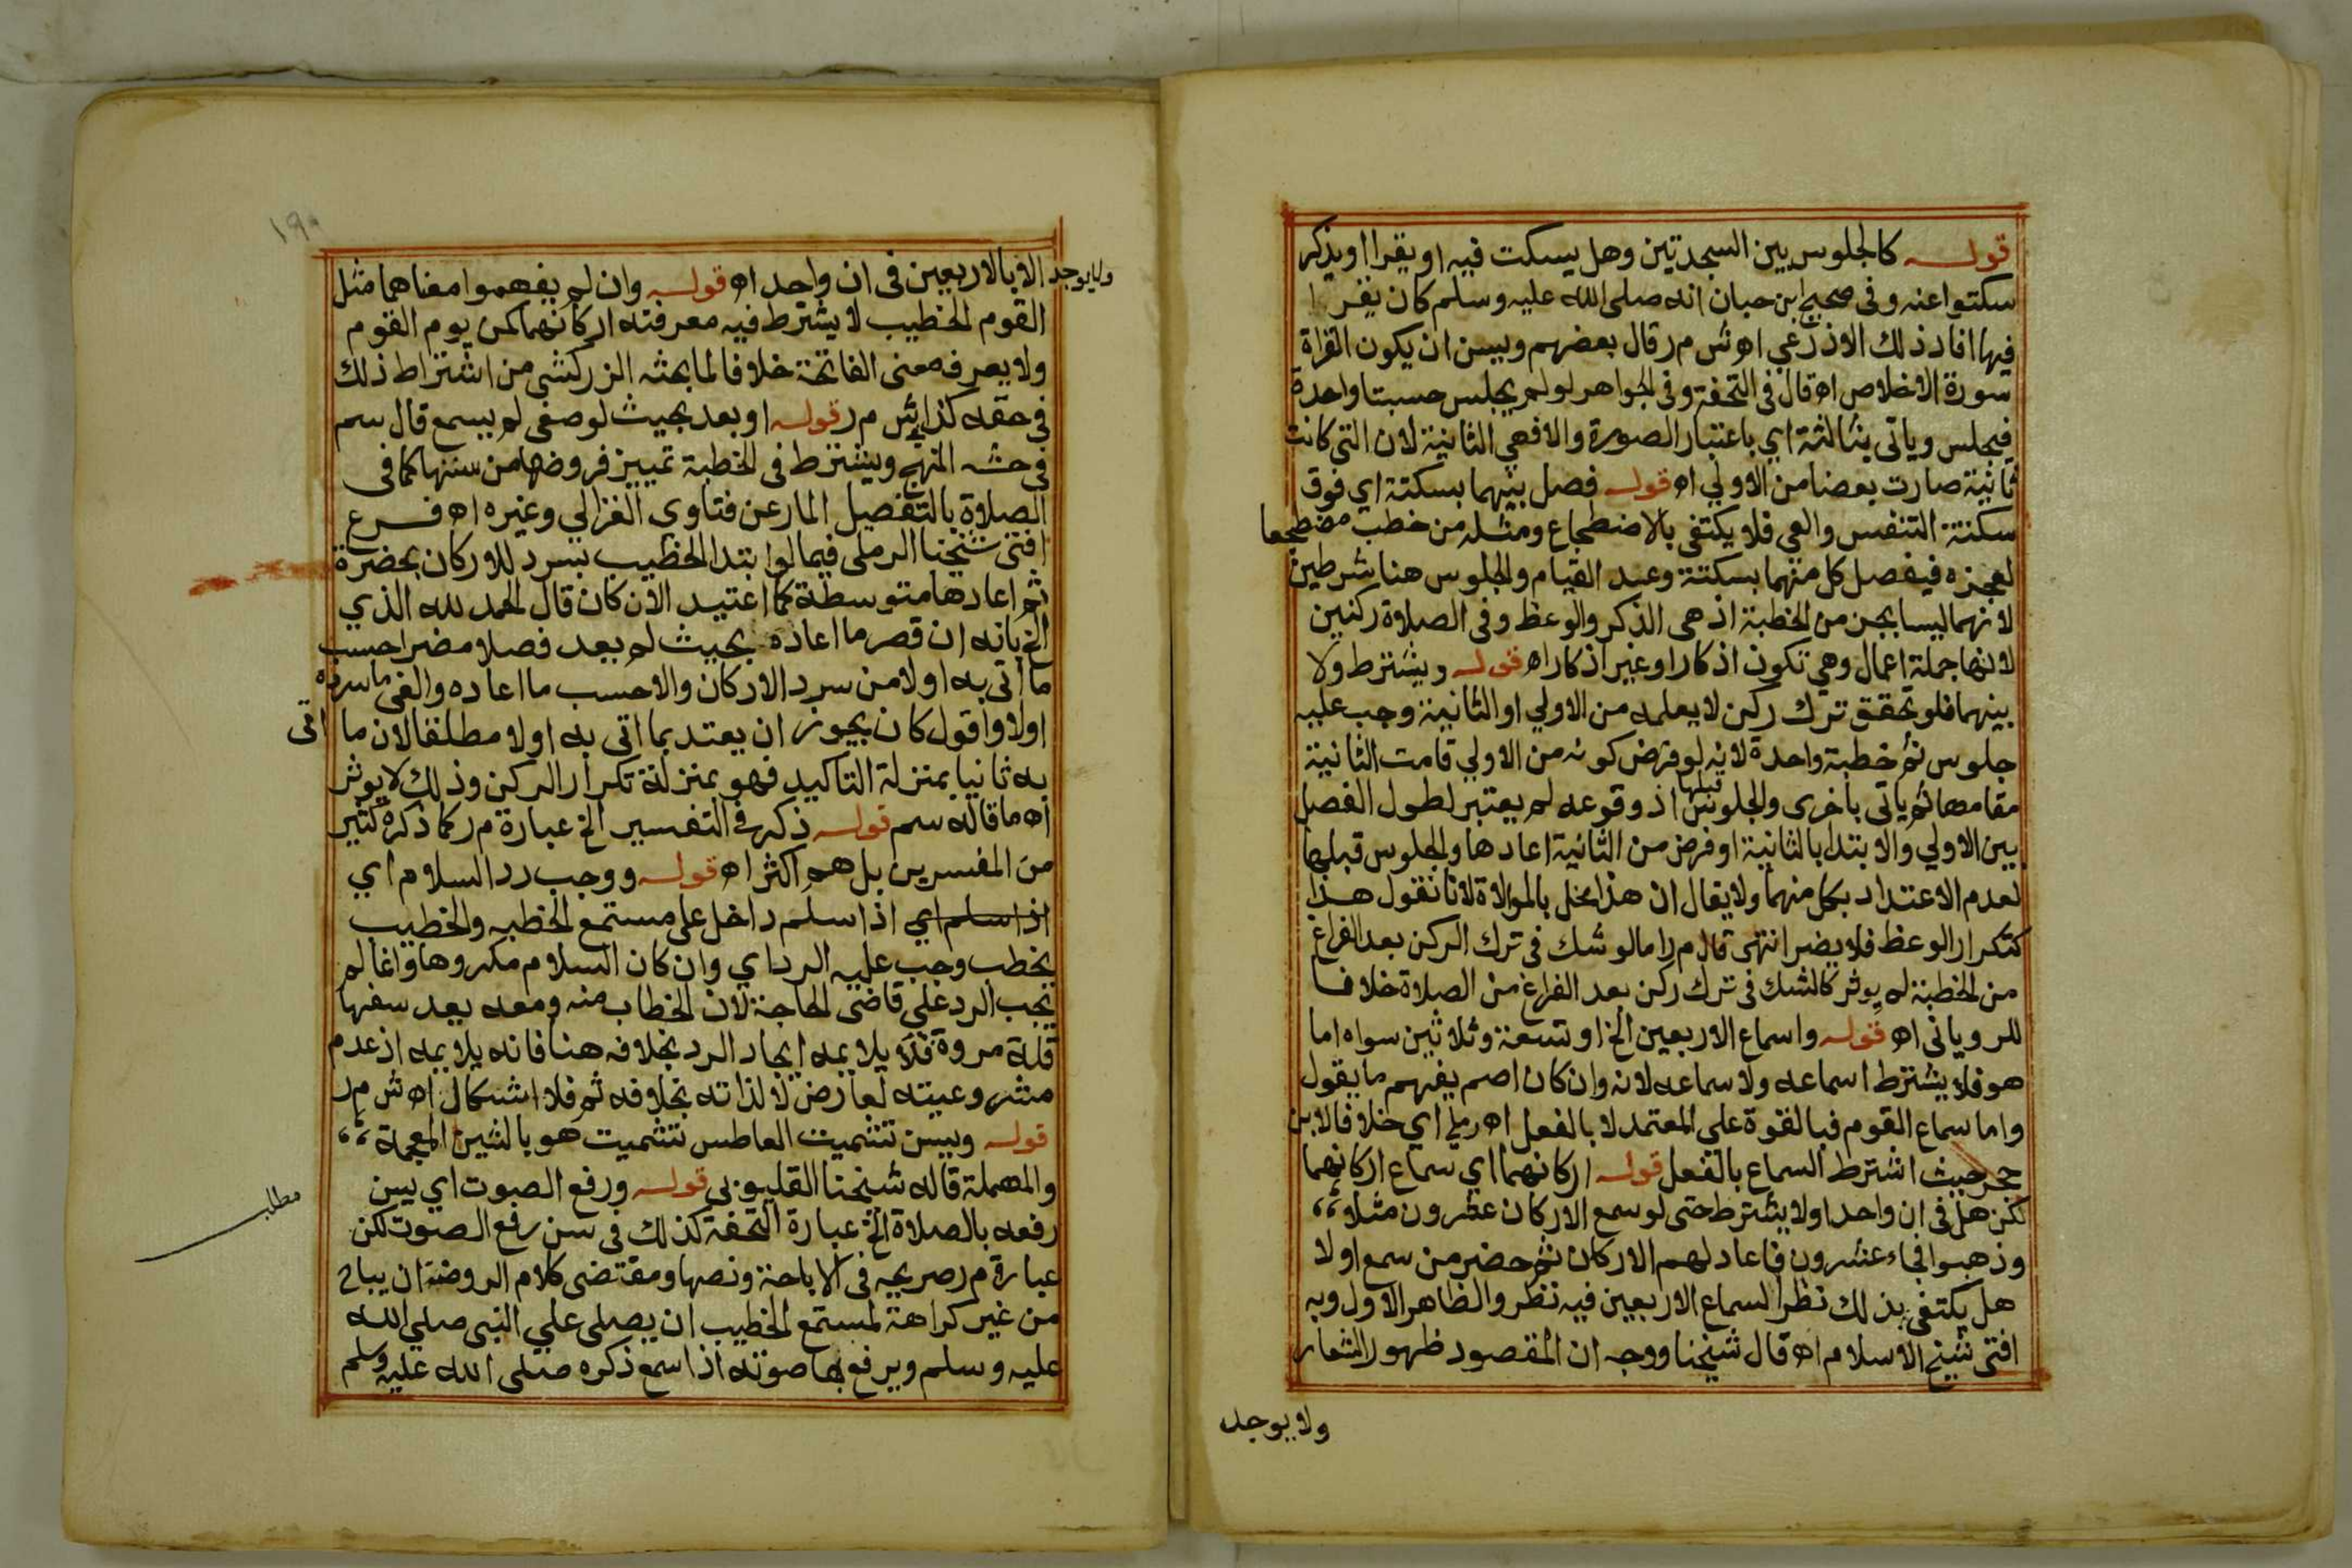 قوله كالجلوس بين السجدتين وهل يسكت فيه او يقرا او يذكر
سكتوا عنه وفى صحيح ابن حبان انه صلى الله عليه وسلم كان يقرا
فيها افاد ذلك الاذرعي اه ش م ر قال بعضهم ويسن ان يكون القراة
سورة الاخلاص اه قال في التحفة وفى الجواهر لو لم يجلس حسبتا واحدة
فيجلس وياتى بثالثة اي باعتبار الصورة والا فهي الثانية لان التي كانت
ثانية صارت بعضا من الاولي اه قوله فصل بينهما بسكتة اي فوق
سكتة التنفس والعي فلا يكتفي بالاضطجاع ومثله من خطب مضطجعا
لعجزه فيفصل كل منهما بسكتة وعد القيام والجلوس هنا شرطين
لانهما ليسا بجزء من الخطبة اذ هى الذكر والوعظ وفى الصلاة ركنين
لانها جملة اعمال وهي تكون اذكارا وغير اذكار اه قوله ويشترط ولا
بينهما فلو تحقق ترك ركن لا يعلمه من الاولي او الثانية وجب عليه
جلوس ثم خطبة واحدة لانه لو فرض كونه من الاولي قامت الثانية
مقامها ثم ياتى باخرى والجلوس قبلها اذ وقوعه لم يعتبر لطول الفصل
بين الاولي والابتدا بالثانية او فرض من الثانية اعادها والجلوس قبلها
لعدم الاعتداد بكل منهما ولا يقال ان هذا يخل بالموالاة لانا نقول هذا
كتكرار الوعظ فلا يضر انتهى قال م ر اما لو شك فى ترك الركن بعد الفراغ
من الخطبة لم يوثر كالشك فى ترك ركن بعد الفراغ من الصلاة خلافا
للرويانى اه قوله واسماع الاربعين الخ او تسعة وثلاثين سواه اما
هو فلا يشترط اسماعه ولا سماعه لانه وان كان اصم يفهم ما يقول
واما سماع القوم فبالقوة على المعتمد لا بالفعل اه رملي اي خلافا لابن
حجر حيث اشترط السماع بالفعل قوله اركانهما اي سماع اركانهما
لكن هل فى ان واحد اولا يشترط حتى لو سمع الاركان عشرون مثلا
وذهبوا فجاء عشرون فاعاد لهم الاركان ثم حضر من سمع اولا
هل يكتفى بذلك نظرا لسماع الاربعين فيه نظر والظاهر الاول وبه
افتى شيخ الاسلام اه قال شيخنا ووجه ان المقصود ظهور الشعار
ولا يوجد
١٩٠
ولا يوجد الا بالاربعين فى ان واحد اه قوله وان لم يفهموا معناهما مثل
القوم الخطيب لا يشترط فيه معرفته اركانهما كمن يوم القوم
ولا يعرف معنى الفاتحة خلافا لما بحثه الزركشى من اشتراط ذلك
فى حقه كذا فى ش م ر قوله او بعد بحيث لو صغى لم يسمع قال سم
في حشه المنهج ويشترط فى الخطبة تمييز فروضها من سننها كما فى
الصلاة بالتفصيل المار عن فتاوى الغزالي وغيره اه فرع
افتى شيخنا الرملى فيما لو ابتدا الخطيب بسرد للاركان بحضرة
ثم اعادها متوسطة كما اعتيد الان كان قال الحمد لله الذي
الخ بانه ان قصر ما اعاده بحيث لم يعد فصلا مضرا حسب
ما اتى به اولا من سرد الاركان والا حسب ما اعاده والغى ما سرده
اولا واقول كان يجوز ان يعتد بما اتى به اولا مطلقا لان ما اتى
به ثانيا بمنزلة التاكيد فهو بمنزلة تكرار الركن وذلك لا يوثر
اه ما قاله سم قوله ذكره في التفسير الخ عبارة م ر كما ذكره كثير
من المفسرين بل هم اكثر اه قوله ووجب رد السلام اي
اذا سلم اي اذا سلم داخل على مستمع الخطبه والخطيب
يخطب وجب عليه الرد اي وان كان السلام مكروها وانما لم
يجب الرد علي قاضى الحاجة لان الخطاب منه ومعه يعد سفها
قلة مروة فلا يلايمه ايجاد الرد بخلافه هنا فانه يلايمه اذ عدم
مشروعيته لعارض لا لذاته بخلافه ثم فلا اشكال اه ش م ر
قوله ويسن تشميت العاطس تشميت هو بالشين المعجمة
والمهملة قاله شيخنا القليوبى قوله ورفع الصوت اي يسن
مطلب
رفعه بالصلاة الخ عبارة التحفة كذلك فى سن رفع الصوت لكن
عبارة م ر صريحه فى الاباحة ونصها ومقتضى كلام الروضة ان يباح
من غير كراهة لمستمع الخطيب ان يصلى علي النبى صلي الله
عليه وسلم ويرفع بها صوته اذا سمع ذكره صلى الله عليه وسلم